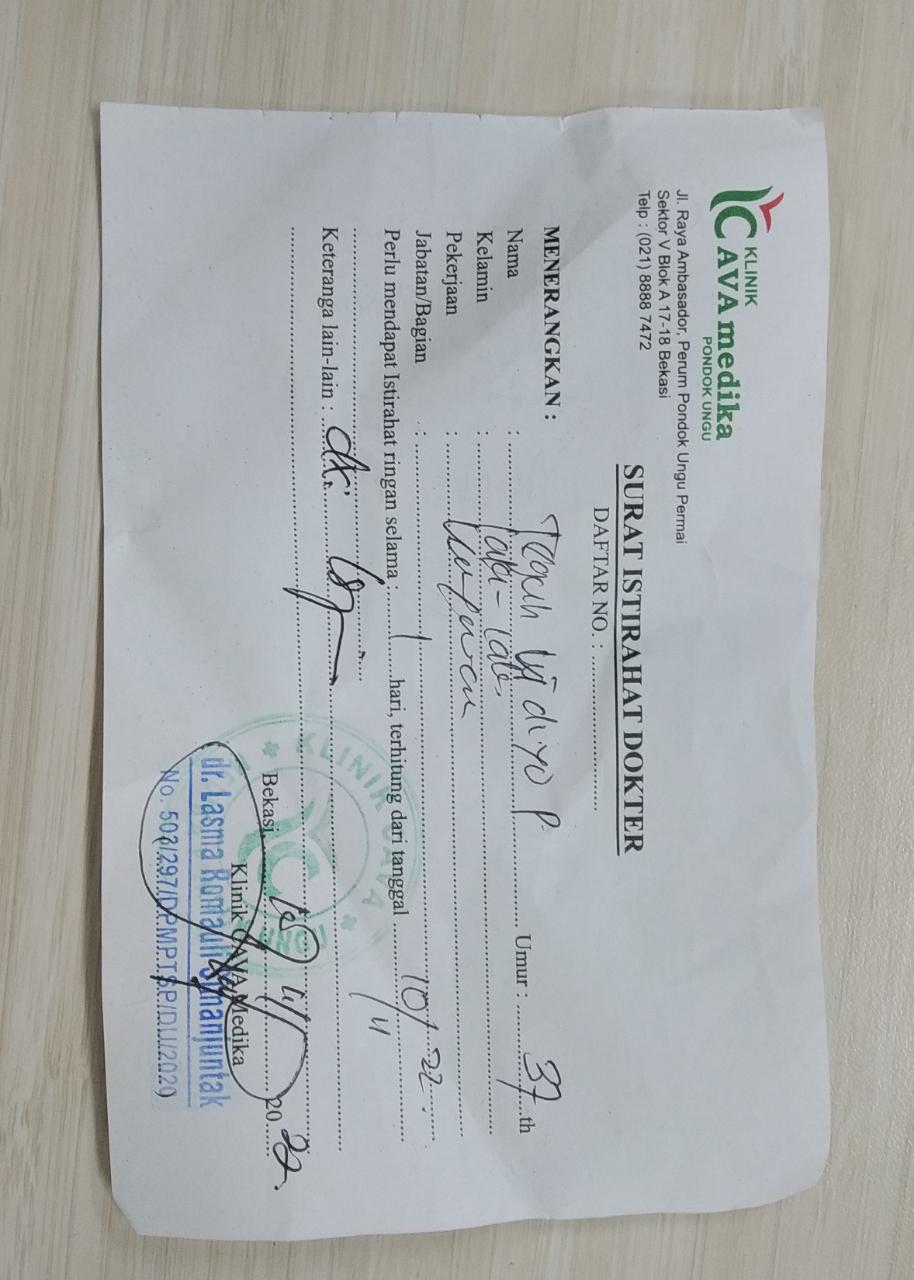 KLINIK
CAVA medika
PONDOK UNGU
Jl. Raya Ambasador, Perum Pondok Ungu Permai
Sektor V Blok A 17-18 Bekasi
Telp : (021) 8888 7472
SURAT ISTIRAHAT DOKTER
DAFTAR NO. : ..............................
MENERANGKAN :
Nama : Teguh Widiyo P Umur : 37 th
Kelamin : Laki-laki
Pekerjaan :
Jabatan/Bagian :
Perlu mendapat Istirahat ringan selama : 1 hari, terhitung dari tanggal 10/11 22
Keteranga lain-lain : dx:
Bekasi, 10/11 20 22.
Klinik CAVA Medika
KLINIK CAVA
dr. Lasma Romauli Simanjuntak
No. 503/297/DPMPTSP/DU/2020